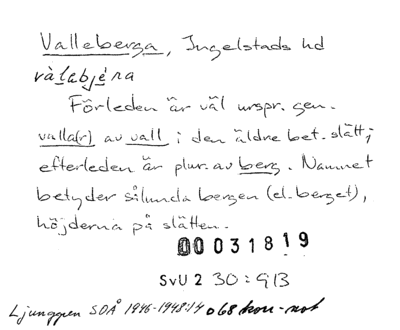 Valleberga, Ingelstads hd
vàlabjéra
Förleden är väl urspr. gen.
valla(r) av vall i den äldre bet. slätt;
efterleden är plur. av berg. Namnet
betyder sålunda bergen (el. berget),
höjderna på slätten.
00031819
SvU 2 30:9B
Ljunggren SOÅ 1946-1948:14 o 68